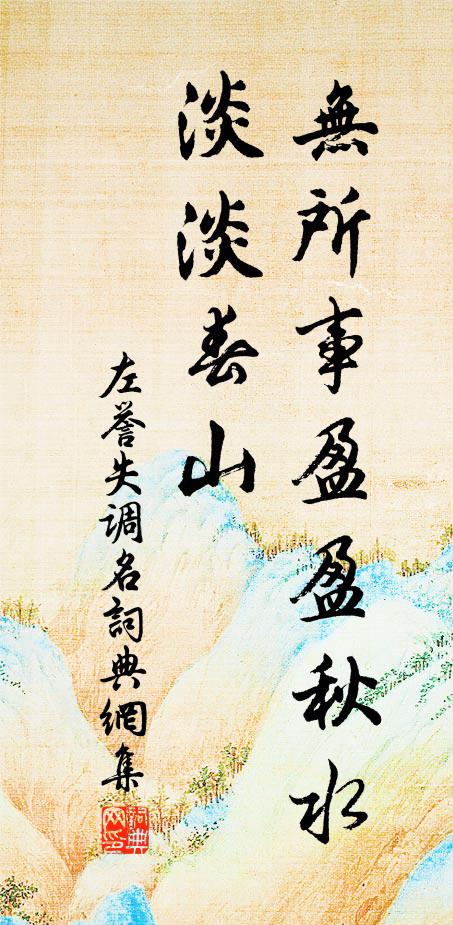 無所事盈盈秋水
淡淡春山
左誉失调名詞典網集
詞典
网印